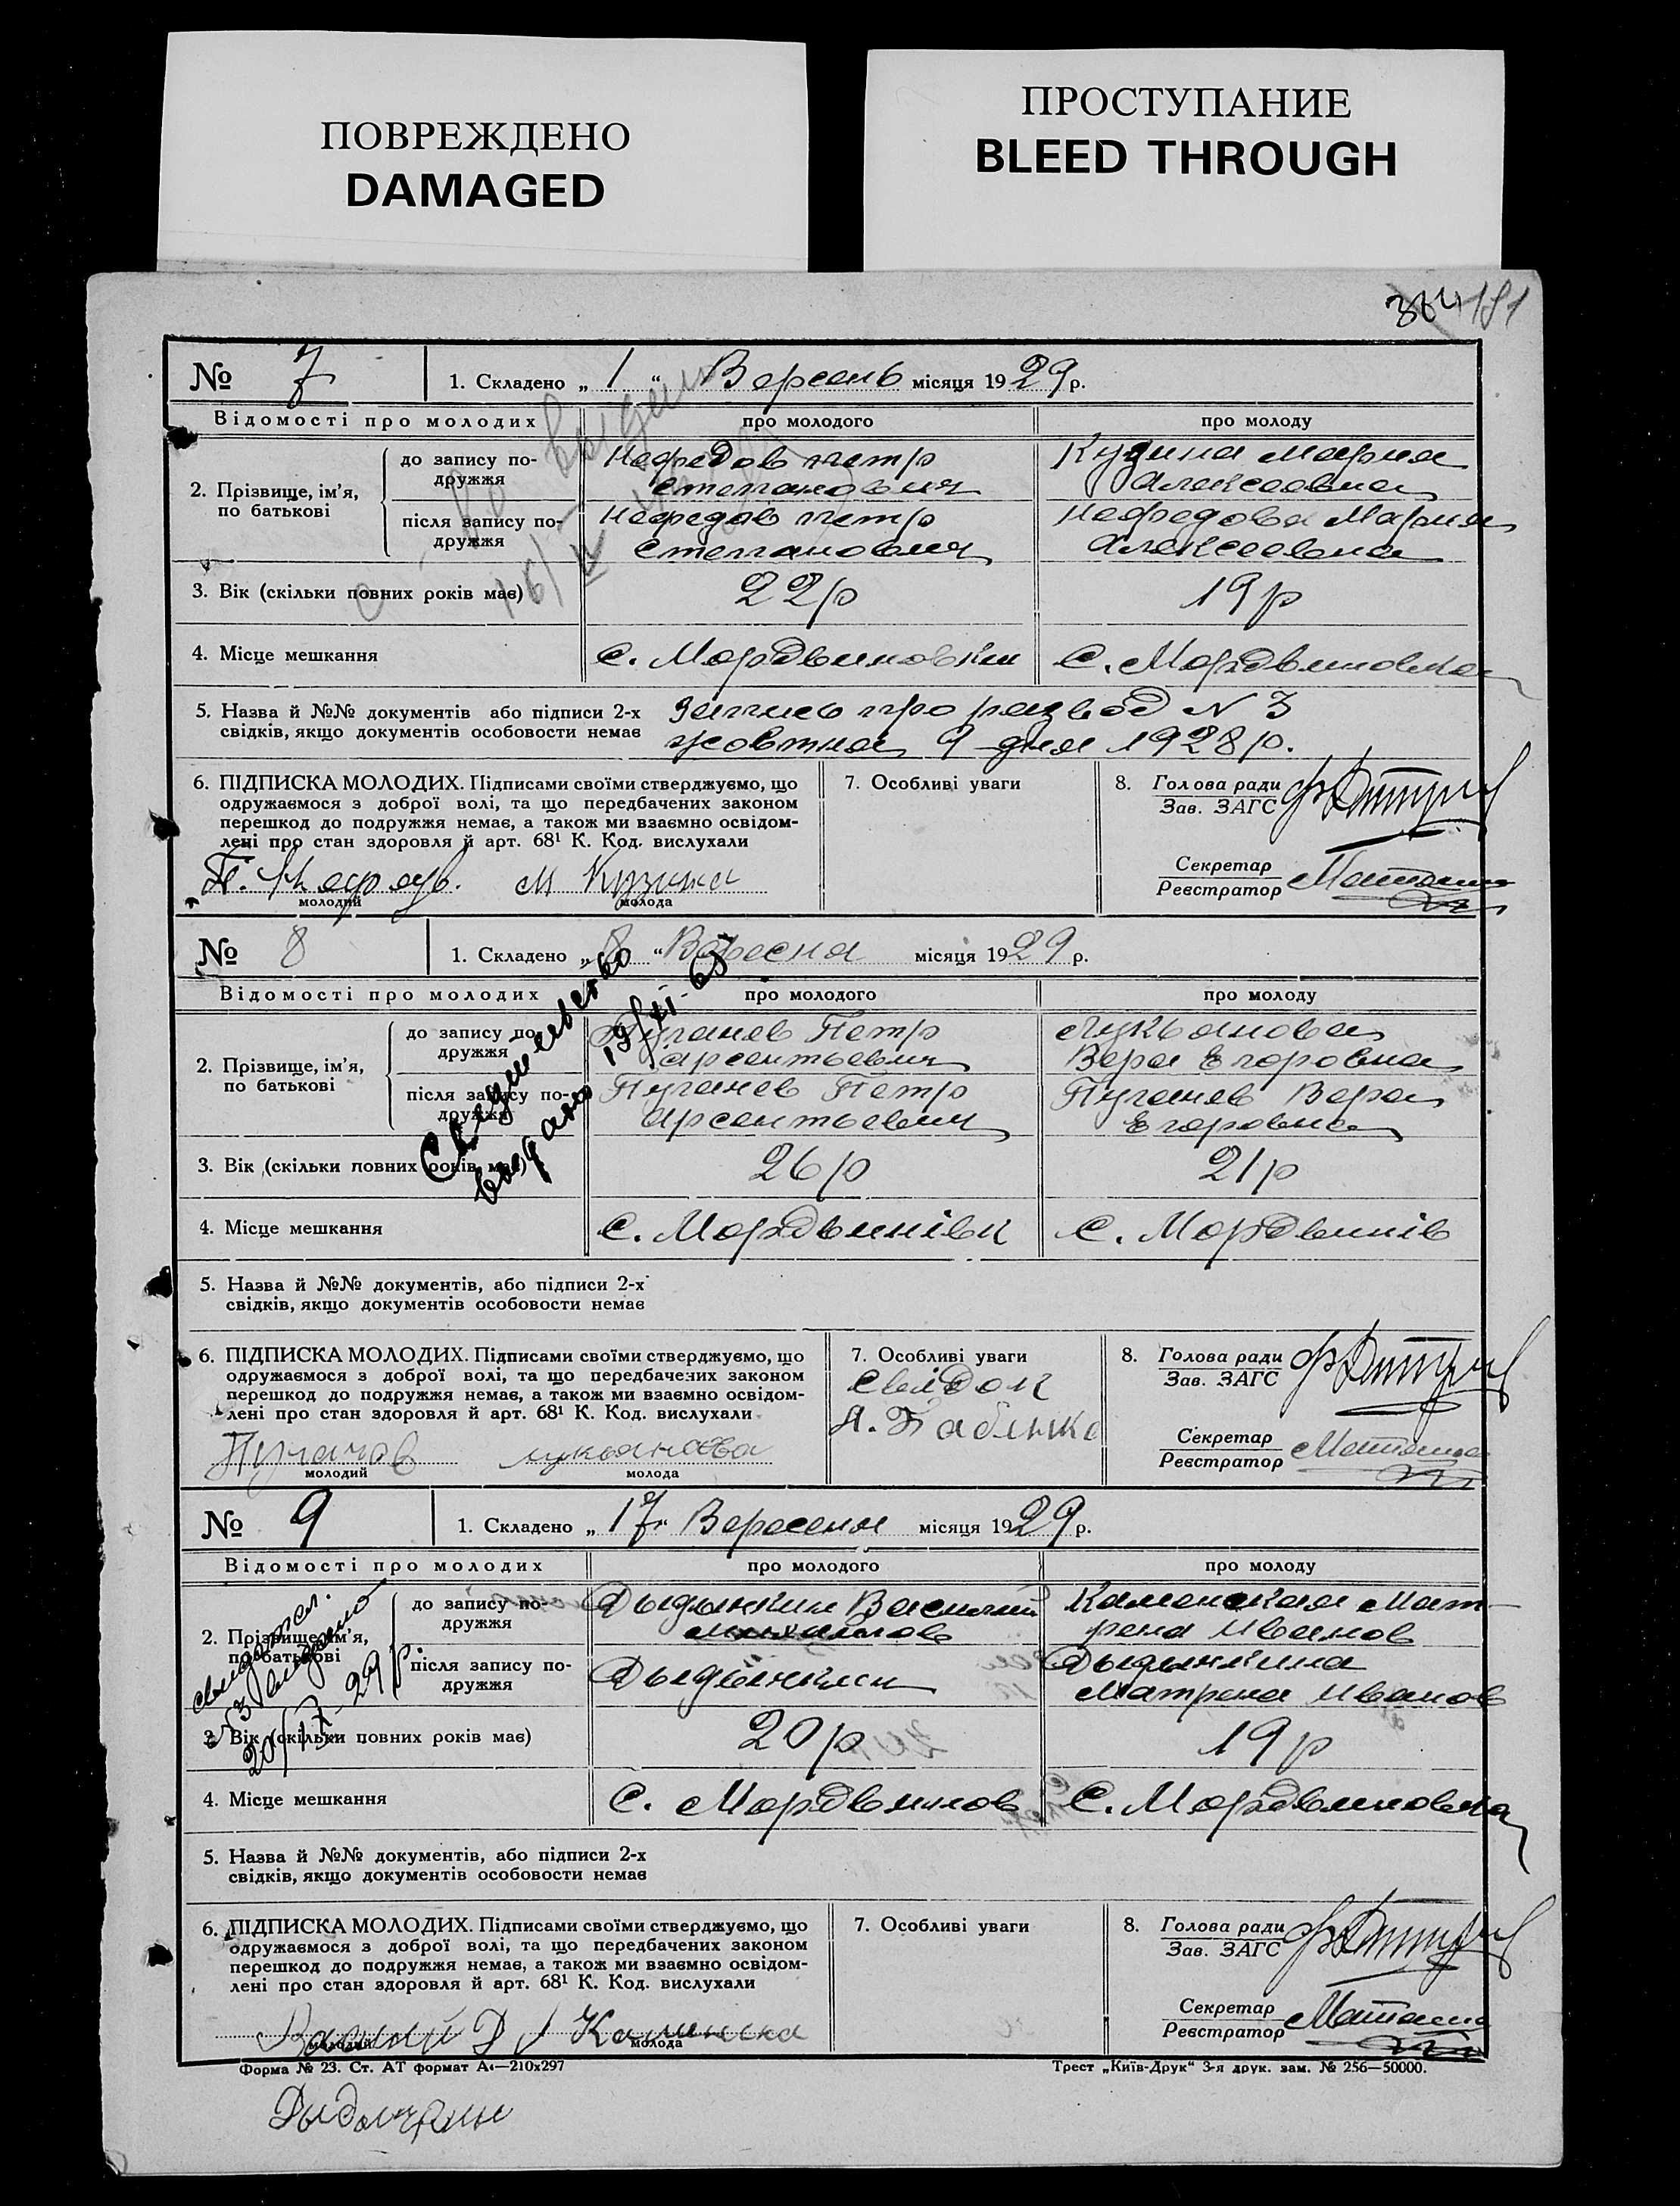 ПОВРЕЖДЕНО
DAMAGED
ПРОСТУПАНИЕ
BLEED THROUGH
191
№ 7
1. Складено „ 1 “ Версень місяця 1929 р.
Відомості про молодих
про молодого
про молоду
2. Прізвище, ім’я, по батькові
до запису подружжя
Нефедов Петр
Степанович
Кузина Мария
Алексеевна
після запису подружжя
Нефедов Петр
Степанович
Нефедова Мария
Алексеевна
3. Вік (скільки повних років має)
22 р
19 р
4. Місце мешкання
С. Мордвиновки
С. Мордвиновка
5. Назва й №№ документів або підписи 2-х
свідків, якщо документів особовости немає
Запись про развод N 3
жовтня 9 дня 1928 р.
6. ПІДПИСКА МОЛОДИХ. Підписами своїми стверджуємо, що
одружаємося з доброї волі, та що передбачених законом
перешкод до подружжя немає, а також ми взаємно освідом-
лені про стан здоровля й арт. 68¹ К. Код. вислухали
П. Нефедов.
молодий
М Кузина
молода
7. Особливі уваги
8. Голова ради
Зав. ЗАГС
Секретар
Реєстратор
№ 8
1. Складено „ 8 “ Вересня місяця 1929 р.
Свидетельство
выдано 19/XI-65
Відомості про молодих
про молодого
про молоду
2. Прізвище, ім’я,
по батькові
до запису по-
дружжя
Пугачев Петр
Арсентьевич
Лукьянова
Вера Егоровна
після запису по-
дружжя
Пугачев Петр
Арсентьевич
Пугачев Вера
Егоровна
3. Вік (скільки повних років має)
26 р
21 р
4. Місце мешкання
С. Мордвинівк
С. Мордвинів
5. Назва й №№ документів, або підписи 2-х
свідків, якщо документів особовости немає
6. ПІДПИСКА МОЛОДИХ. Підписами своїми стверджуємо, що
одружаємося з доброї волі, та що передбачених законом
перешкод до подружжя немає, а також ми взаємно освідом-
лені про стан здоровля й арт. 68¹ К. Код. вислухали
Пугачов
молодий
лукьанова
молода
7. Особливі уваги
свідок
8. Голова ради
Зав. ЗАГС
Секретар
Реєстратор
№ 9
1. Складено „ 17 “ Вересеня місяця 1929 р.
Відомості про молодих
про молодого
про молоду
2. Прізвище, ім’я,
по батькові
до запису по-
дружжя
Дыдыкин Василий
Михайлов
Каменская Мат-
рена Иванов
після запису по-
дружжя
Дыдыкин
Дыдыкина
Матрена Иванов
3. Вік (скільки повних років має)
20 р
19 р
4. Місце мешкання
С. Мордвинов
С. Мордвиновка
5. Назва й №№ документів, або підписи 2-х
свідків, якщо документів особовости немає
6. ПІДПИСКА МОЛОДИХ. Підписами своїми стверджуємо, що
одружаємося з доброї волі, та що передбачених законом
перешкод до подружжя немає, а також ми взаємно освідом-
лені про стан здоровля й арт. 68¹ К. Код. вислухали
Василий Д
молодий
молода
7. Особливі уваги
8. Голова ради
Зав. ЗАГС
Секретар
Реєстратор
Форма № 23. Ст. АТ формат А4—210х297
Трест „Київ-Друк“ 3-я друк. зам. № 256—50000.